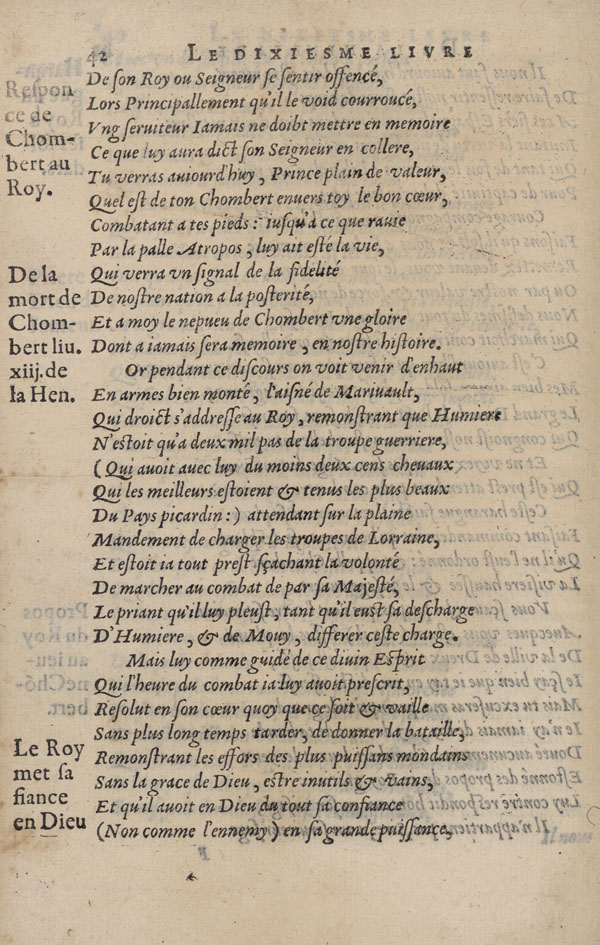 42 LE DIXIESME LIVRE
De ſon Roy ou Seigneur ſe ſentir offencé,
Lors Principallement qu'il le void courroucé,
Vng ſeruiteur Iamais ne doibt mettre en memoire
Ce que luy aura dict ſon Seigneur en collere,
Tu verras auiourd'huy, Prince plain de valeur,
Quel est de ton Chombert enuers toy le bon cœur,
Combatant a tes pieds: iuſqu'à ce que rauie
Par la palle Atropos, luy ait esté la vie,
Qui verra vn ſignal de la fidelité
De nostre nation a la posterité,
Et a moy le nepueu de Chombert vne gloire
Dont a iamais ſera memoire, en nostre histoire.
Or pendant ce diſcours on voit venir d'enhaut
En armes bien monté, l'aiſné de Mariuault,
Qui droict s'addreſſe au Roy, remonſtrant que Humiere
N'estoit qu'a deux mil pas de la troupe guerriere,
(Qui auoit auec luy du moins deux cens cheuaux
Qui les meilleurs estoient & tenus les plus beaux
Du Pays picardin:) attendant ſur la plaine
Mandement de charger les troupes de Lorraine,
Et estoit ia tout prest ſçachant la volonté
De marcher au combat de par sa Majesté,
Le priant qu'il luy pleust, tant qu'il eust sa deſcharge
D'Humiere, & de Mouy, differer ceste charge.
Mais luy comme guidé de ce diuin Eſprit
Qui l'heure du combat ia luy auoit preſcrit,
Reſolut en ſon cœur quoy que ce ſoit & vaille
Sans plus long temps tarder, de donner la bataille,
Remonſtrant les effors des plus puiſſans mondains
Sans la grace de Dieu, estre inutils & vains,
Et qu'il auoit en Dieu du tout sa confiance
(Non comme l'ennemy) en sa grande puiſſance,
Reſpon
ce de
Chom-
bert au
Roy.
De la
mort de
Chom-
bert liu.
xiij. de
la Hen.
Le Roy
met sa
fiance
en Dieu